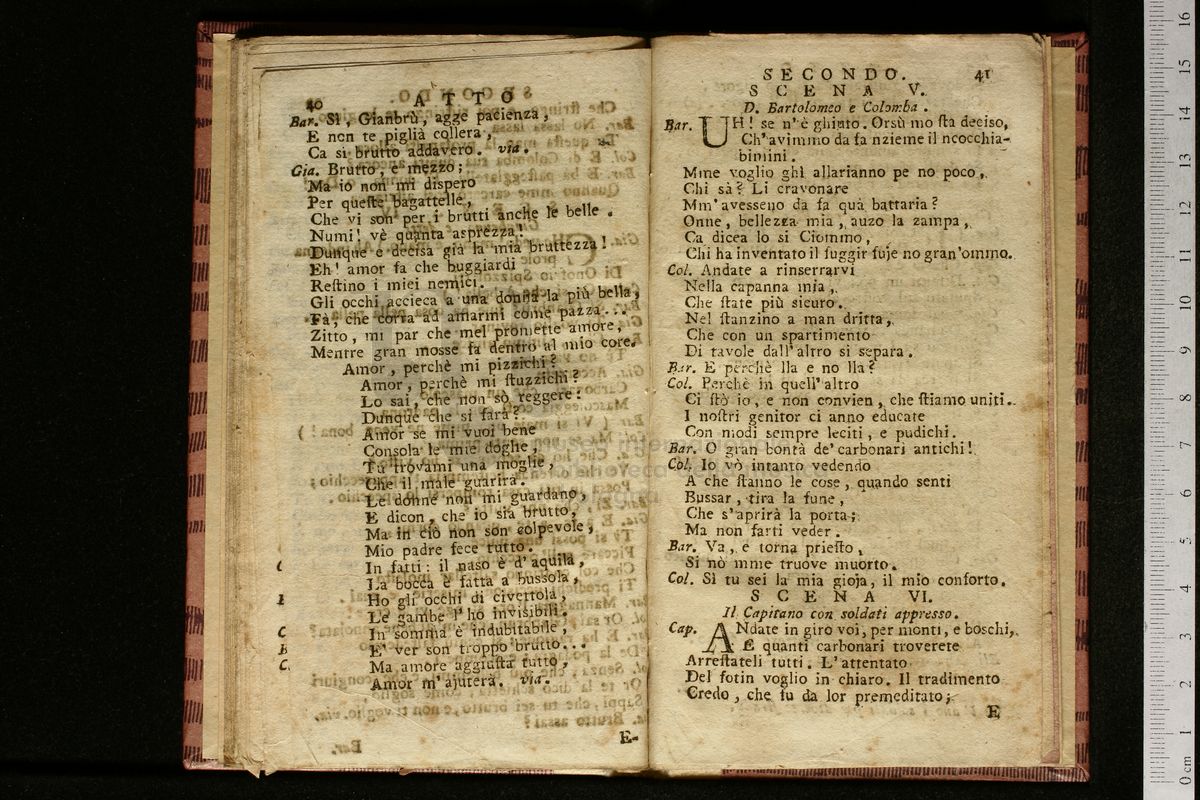 40 ATTO
Bar. Sì, Gianbrù, agge pacienza,
E non te piglià collera,
Ca si brutto addavero. via.
Gia. Brutto, e mezzo;
Ma io non mi dispero
Per queste bagattelle,
Che vi son per i brutti anche le belle.
Numi! vè quanta asprezza!
Dunque è decisa già la mia bruttezza!
Eh! amor fa che buggiardi
Restino i miei nemici.
Gli occhi accieca a una donna la più bella,
Fa, che corra ad amarmi come pazza...
Zitto, mi par che mel promette amore,
Mentre gran mosse fa dentro al mio core.
Amor, perchè mi pizzichi?
Amor, perchè mi stuzzichi?
Lo sai, che non sò reggere:
Dunque che si farà?
Amor se mi vuoi bene
Consola le mie doghe,
Tu trovami una moglie,
Che il male guarirà.
Le donne non mi guardano,
E dicon, che io sia brutto,
Ma in ciò non son colpevole,
Mio padre fece tutto.
In fatti: il naso è d'aquila,
La bocca è fatta a bussola,
Ho gli occhi di civettola,
Le gambe l'ho invisibili.
In somma è indubitabile,
E' ver son troppo brutto...
Ma amore aggiusta tutto,
Amor m'ajuterà. via.
E-
SECONDO. 41
SCENA V.
D. Bartolomeo e Colomba.
Bar. UH! se n'è ghiuto. Orsù mo sta deciso,
Ch'avimmo da fa nzieme il ncocchia-
bimini.
Mme voglio ghì allarianno pe no poco,
Chi sà? Li cravonare
Mm'avesseno da fa quà battaria?
Onne, bellezza mia, auzo la zampa,
Ca dicea lo si Ciommo,
Chi ha inventato il fuggir fuje no gran'ommo.
Col. Andate a rinserrarvi
Nella capanna mia,
Che state più sicuro.
Nel stanzino a man dritta,
Che con un spartimento
Di tavole dall'altro si separa.
Bar. E perchè lla e no lla?
Col. Perchè in quell'altro
Ci stò io, e non convien, che stiamo uniti.
I nostri genitor ci anno educate
Con modi sempre leciti, e pudichi.
Bar. O gran bontà de' carbonari antichi!
Col. Io vò intanto vedendo
A che stanno le cose, quando senti
Bussar, tira la fune,
Che s'aprirà la porta;
Ma non farti veder.
Bar. Va, e torna priesto,
Si nò mme truove muorto.
Col. Sì tu sei la mia gioja, il mio conforto.
SCENA VI.
Il Capitano con soldati appresso.
Cap. ANdate in giro voi, per monti, e boschi,
E quanti carbonari troverete
Arrestateli tutti. L'attentato
Del fotin voglio in chiaro. Il tradimento
Credo, che fu da lor premeditato;
E